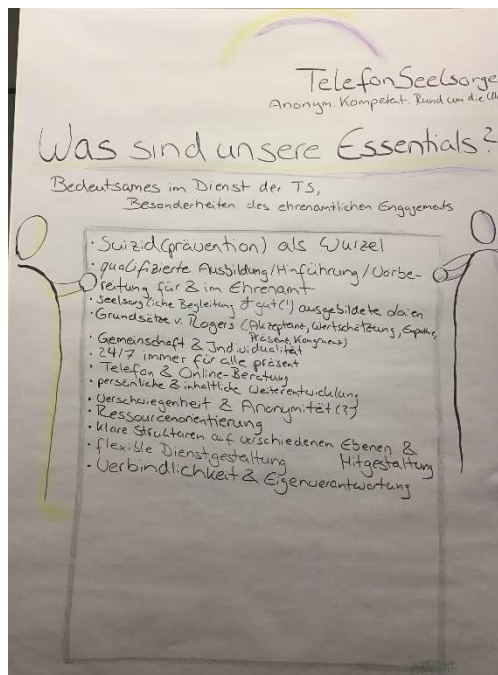 TelefonSeelsorge
Anonym. Kompetent. Rund um die
Was sind unsere Essentials?
Bedeutsames im Dienst der TS,
Besonderheiten des ehrenamtlichen Engagements
• Suizid(prävention) als Wurzel
• qualifizierte Ausbildung/Hinführung/Vorbe-
reitung für & im Ehrenamt
• seelsorgliche Begleitung gut(!) ausgebildete Laien
• Grundsätze v. Rogers (Akzeptanz, Wertschätzung, Empathie,
Präsenz, Kongruenz)
• Gemeinschaft & Individualität
• 24/7 immer für alle präsent
• Telefon & Online-Beratung
• persönliche & inhaltliche Weiterentwicklung
• Verschwiegenheit & Anonymität (?)
• Ressourcenorientierung
• klare Strukturen auf verschiedenen Ebenen &
Mitgestaltung
• flexible Dienstgestaltung
• Verbindlichkeit & Eigenverantwortung